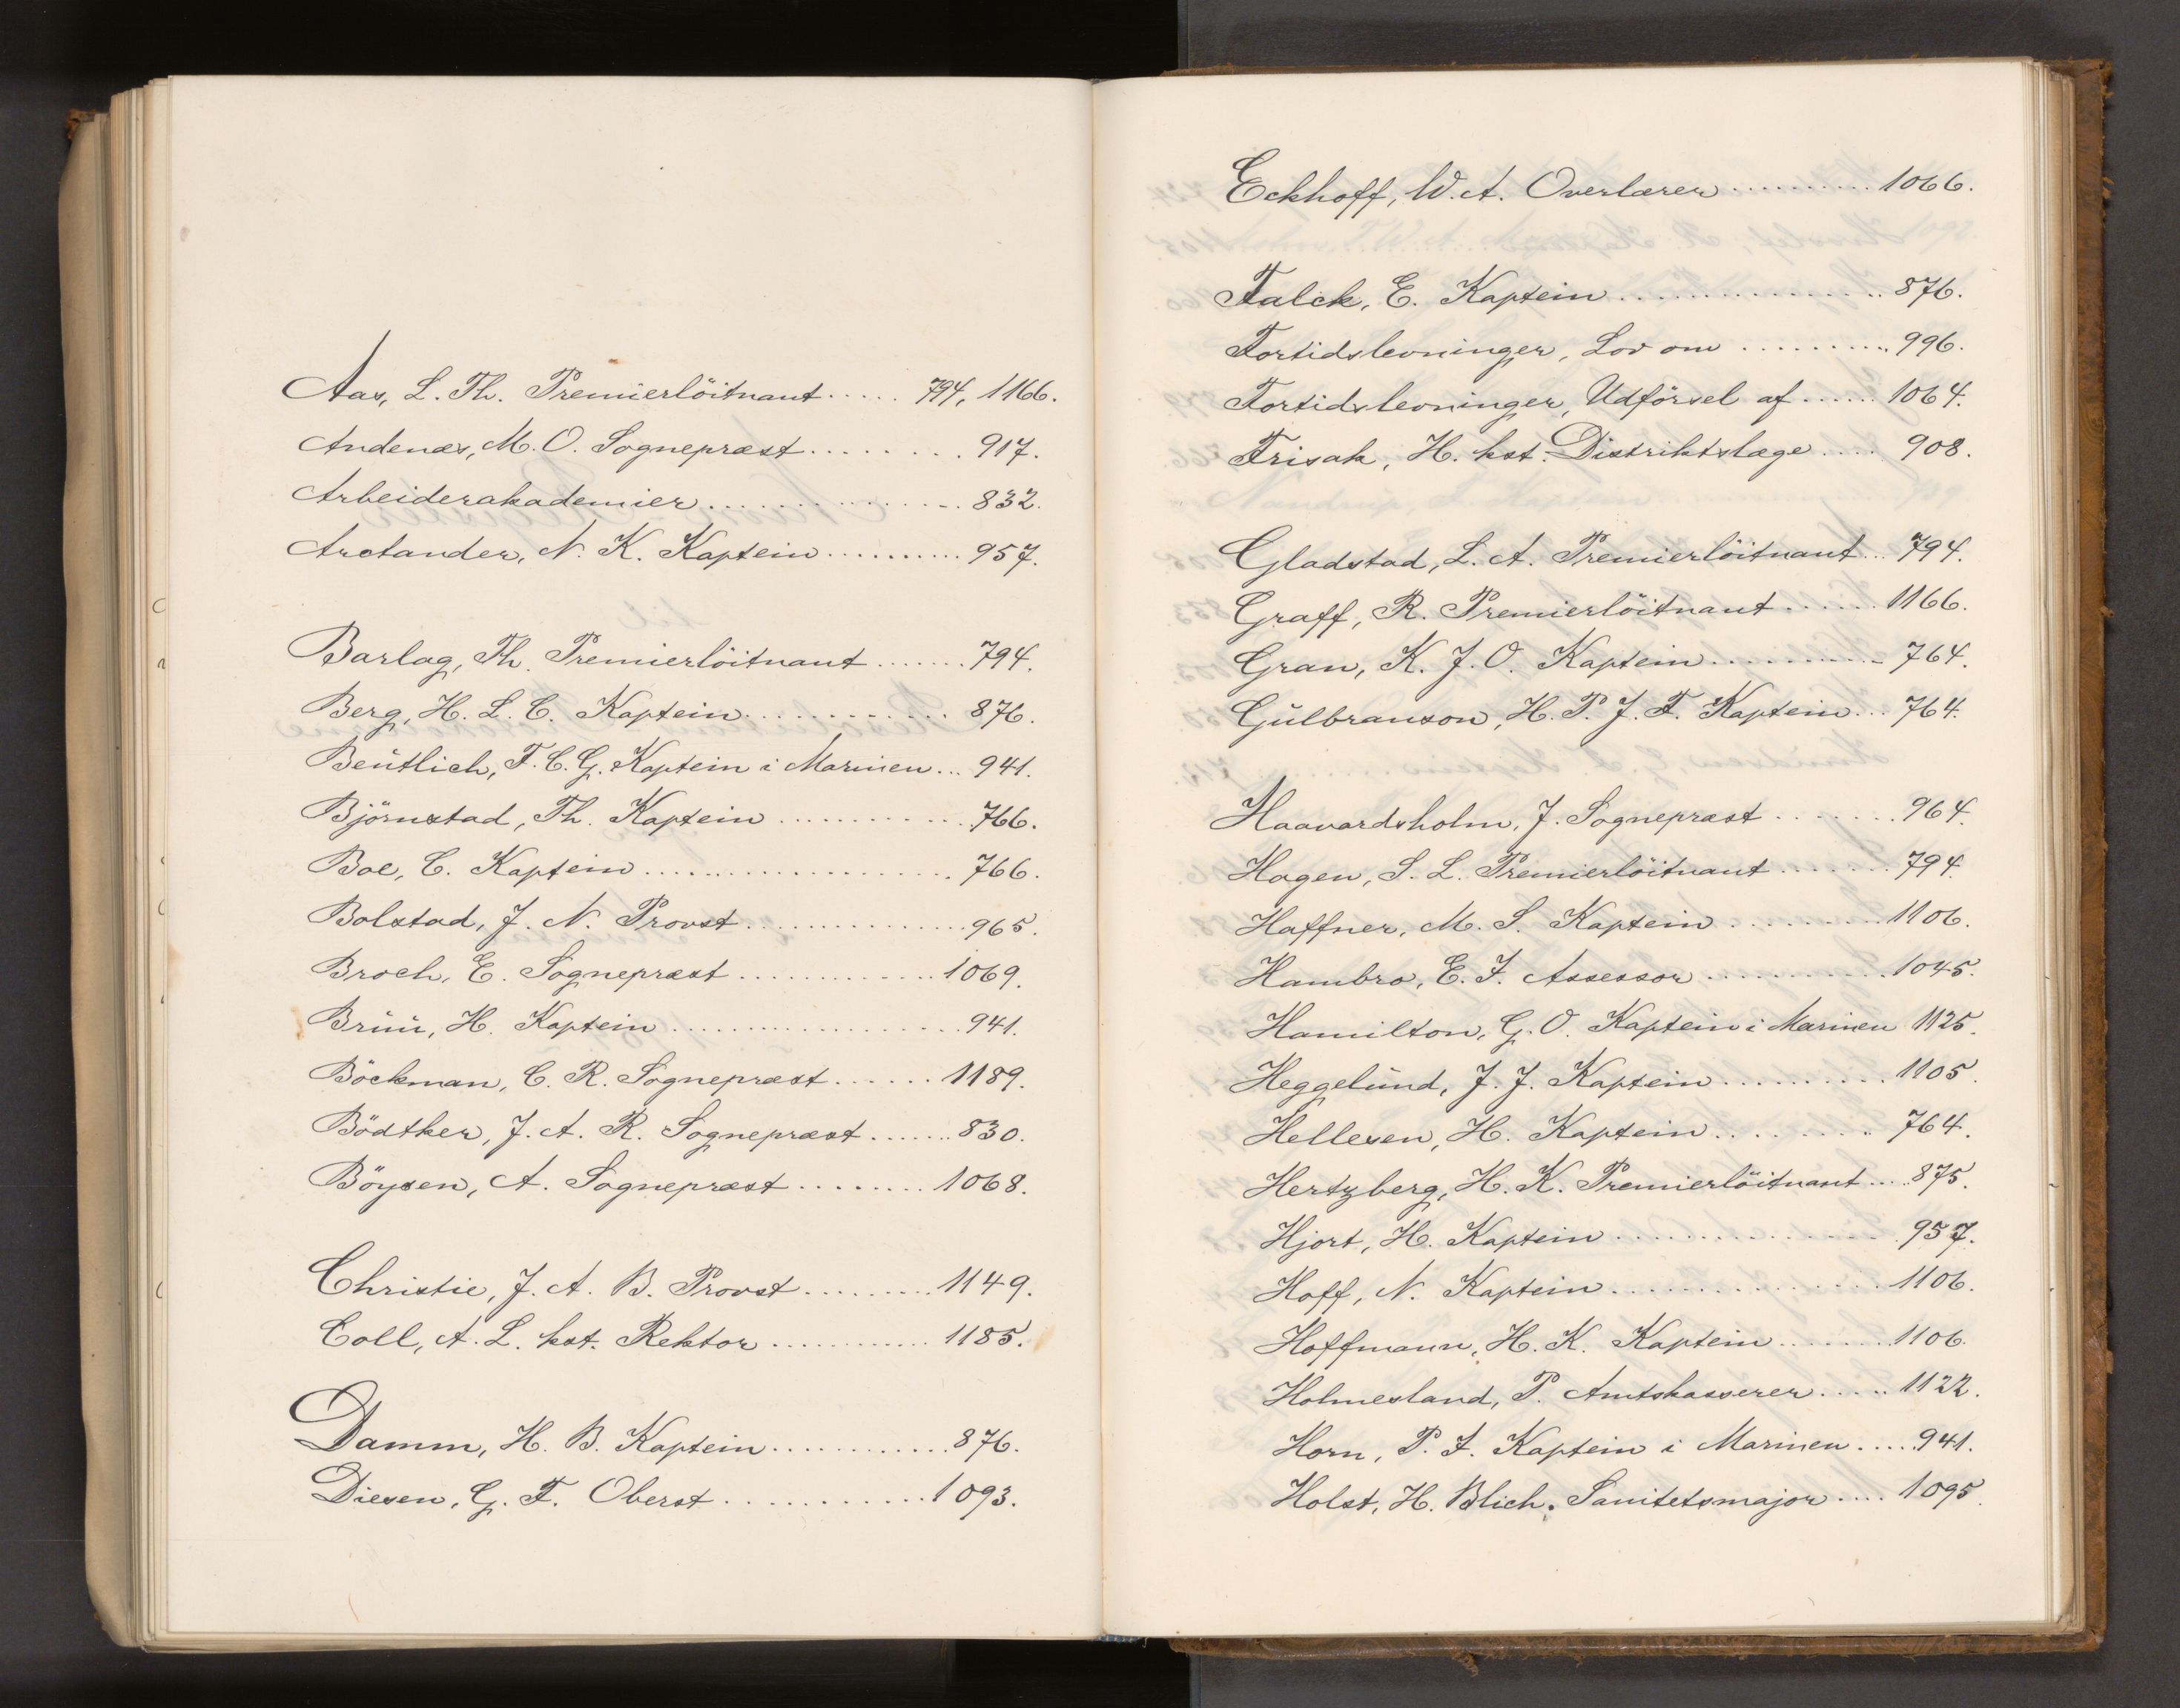 Aas, L. Th. Premierlöitnant ..... 794, 1166.
Andenæs, M. O. Sognepræst ........ 917.
Arbeiderakademier ............... 832.
Arctander, N. K. Kaptein .......... 957.
Barlag, Th. Premierlöitnant ....... 794.
Berg, H. L. C. Kaptein ............ 876.
Beütlich, F. C. G. Kaptein i Marinen ... 941.
Björnstad, Th. Kaptein ............ 766.
Boe, C. Kaptein ................... 766.
Bolstad, J. N. Provst .............. 965.
Broch, E. Sognepræst ............. 1069.
Brüü, H. Kaptein ................. 941.
Böckman, C. R. Sognepræst ...... 1189.
Bödtker, J. A. R. Sognepræst ....... 830.
Böysen, A. Sognepræst ........ 1068.
Christie, J. A. B. Provst ......... 1149.
Coll, A. L. kst. Rektor ........... 1185.
Damm, H. B. Kaptein ............ 876.
Diesen, G. F. Oberst ............ 1093.
Eckhoff, W. A. Overlærer .......... 1066.
Falck, E. Kaptein ................ 876.
Fortidslevninger, Lov om .......... 996.
Fortidslevninger, Udförsel af ..... 1064.
Frisak, H. kst. Distriktslæge .... 908.
Gladstad, L. A. Premierlöitnant ... 794.
Graff, R. Premierlöitnant ...... 1166.
Gran, K. J. O. Kaptein ........... 764.
Gülbranson, H. P. J. F. Kaptein ... 764.
Haavardsholm, J. Sognepræst ....... 964.
Hagen, S. L. Premierlöitnant ....... 794.
Haffner, M. S. Kaptein ......... 1106.
Hambro, E. I. Assessor ........... 1045.
Hamilton, G. O. Kaptein i Marinen 1125.
Heggelünd, J. J. Kaptein .......... 1105.
Hellesen, H. Kaptein ........ 764.
Hertzberg, H. K. Premierlöitnant .... 875.
Hjort, H. Kaptein .............. 957.
Hoff, N. Kaptein ............... 1106.
Hoffmann, H. K. Kaptein ....... 1106.
Holmesland, P. Amtskasserer ..... 1122.
Horn, P. I. Kaptein i Marinen .... 941.
Holst, H. Blich. Sanitetsmajor .... 1095.